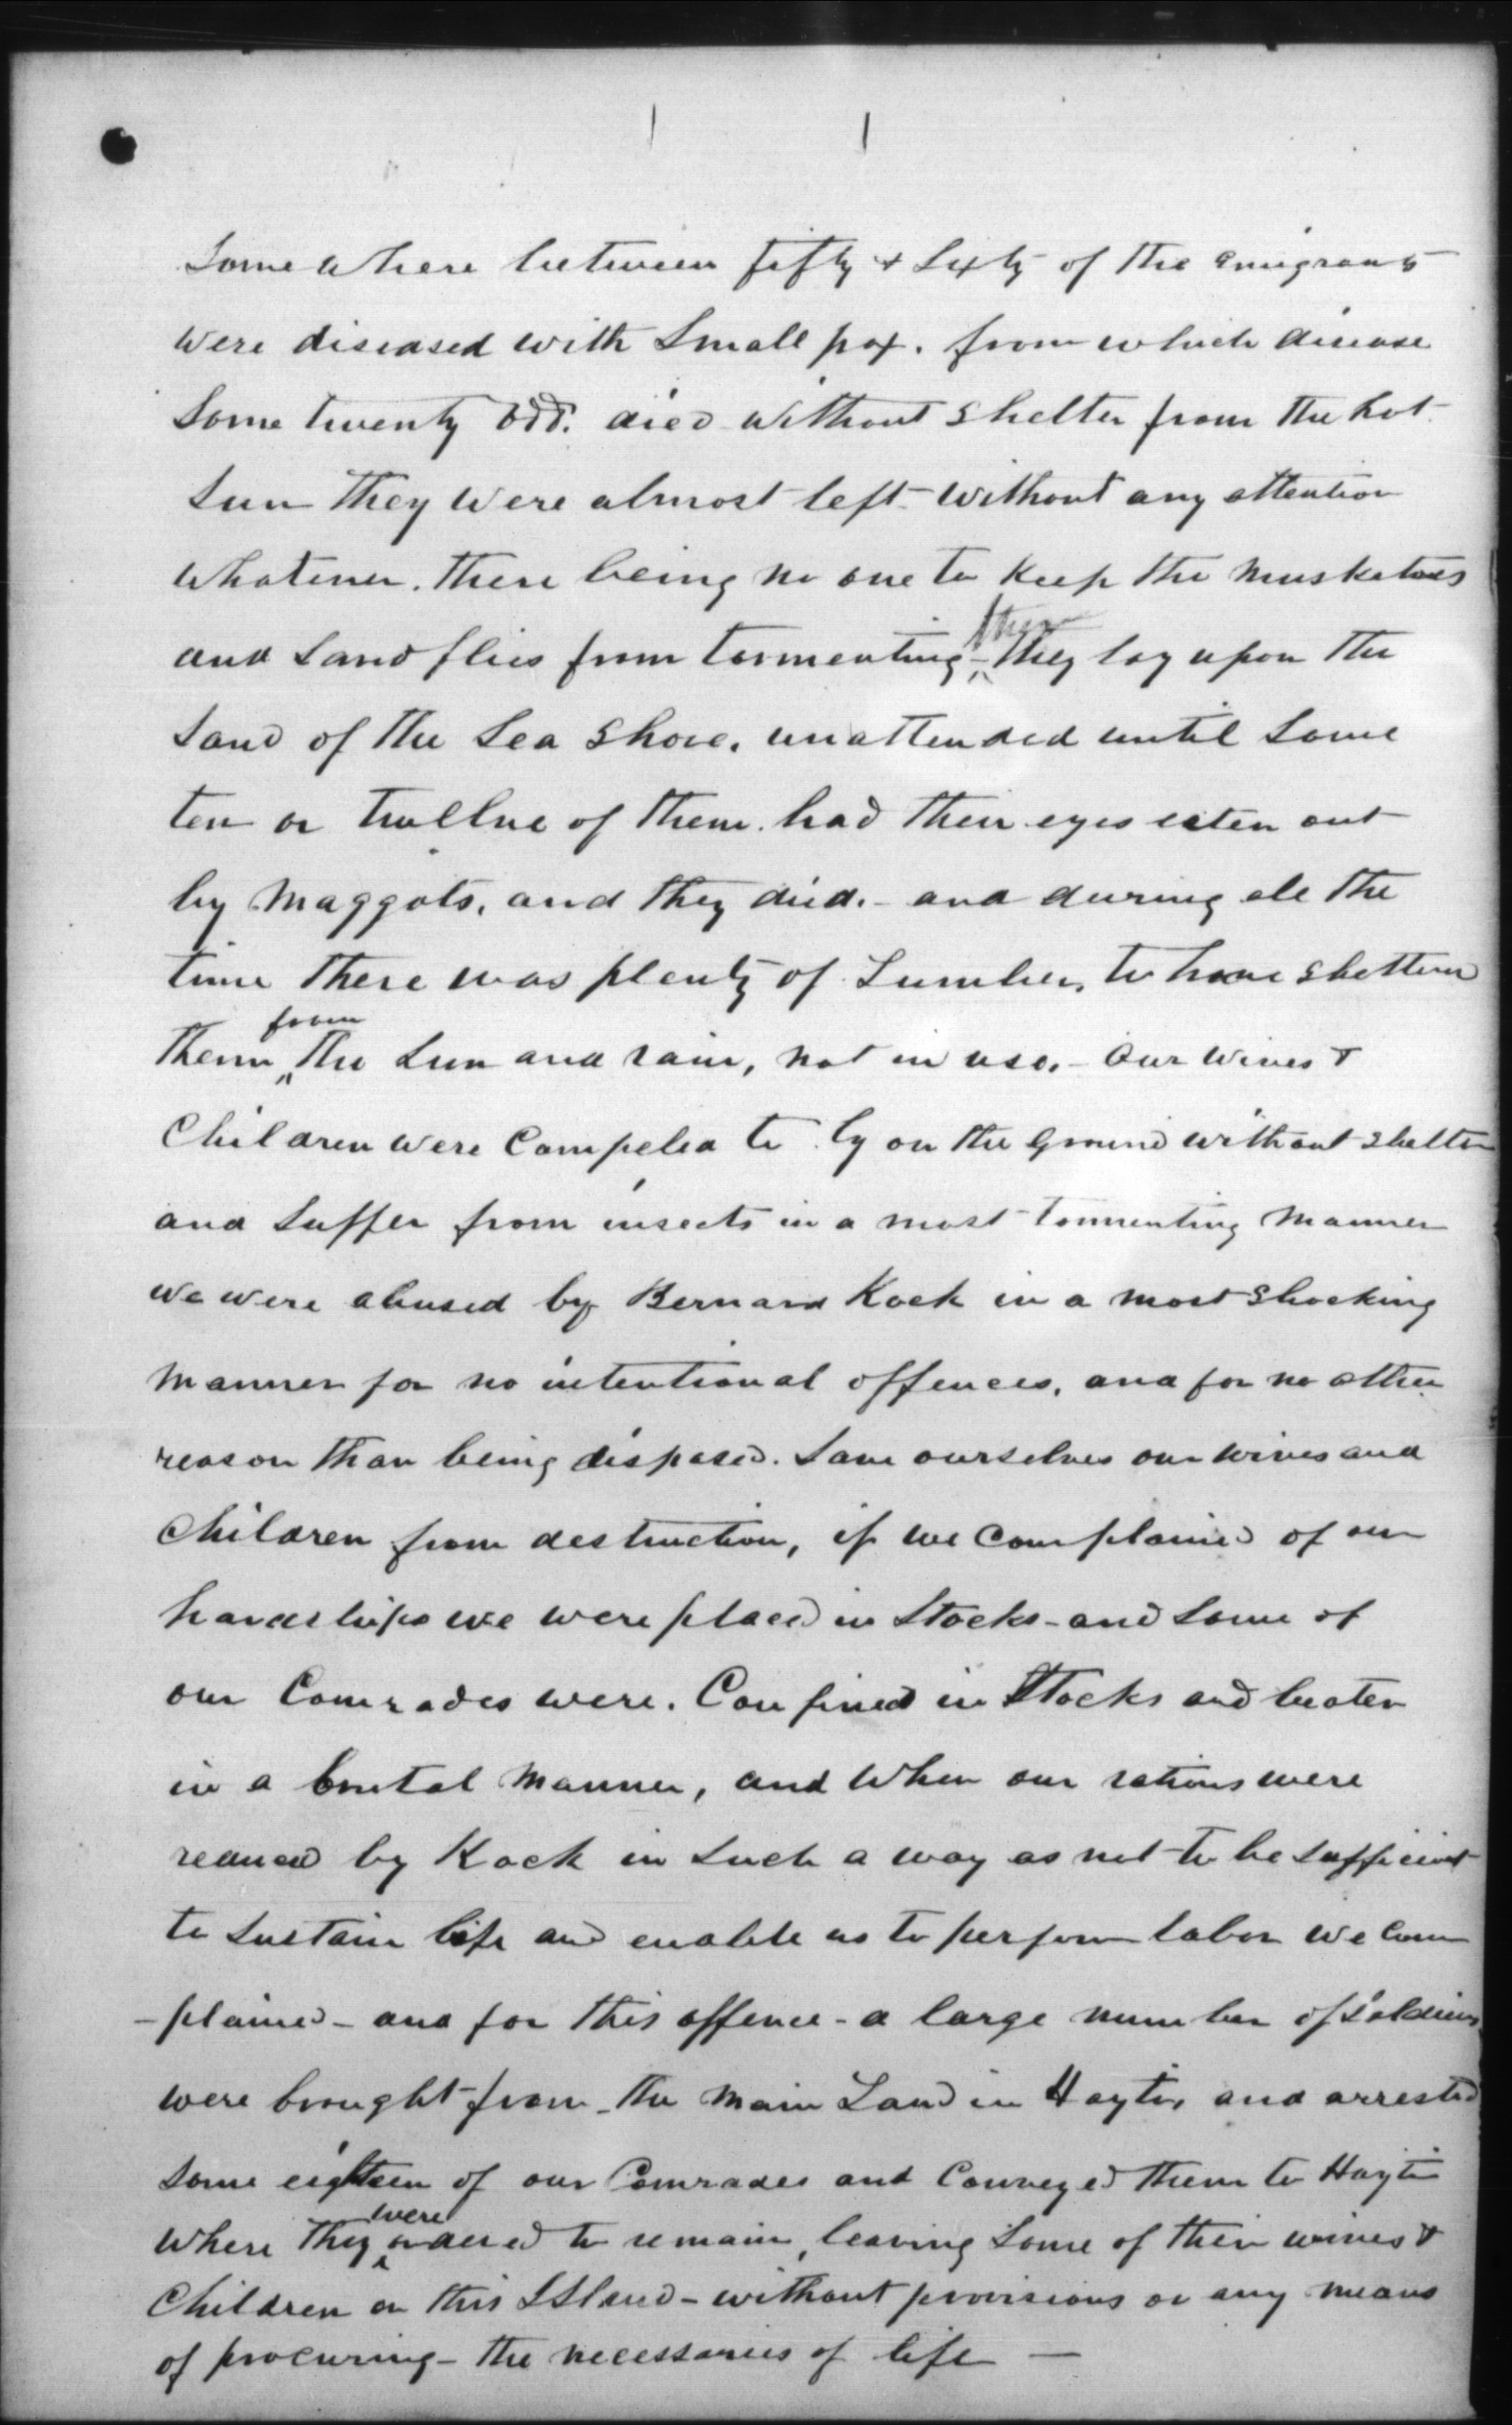 Some where between fifty & Sixty of the emigrants
were diseased with Small pox. from which disease
Some twenty odd. died without shelter from the hot
Sun They were almost left without any attention
whatever. There being no one to keep the musketoes
and Sand flies from tormenting them they lay upon the
Sand of the Sea Shore. unattended until Some
ten or twellve of them. had their eyes eaten out
by maggots, and they died. - and during ale the
time there was plenty of Lumber, to have sheltered
them from the Sun and rain, not in use. - Our wives &
Children were Compeled to ly on the Ground without shelter
and Suffer from insects in a most tormenting manner
we were abused by Bernard Kock in a most Shocking
manner for no intentional offences, and for no other
reason than being disposed. Save ourselves our wives and
Children from destruction, if we Complained of our
hardships we were placed in Stocks - and Some of
our Comrades were. Confined in Stocks and beaten
in a brutal manner, and when our rations were
reduced by Kock in Such a way as not to be Sufficient
to Sustain life and enable us to perform labor we Com
- plained - and for this offence - a large number of Soldiers
were brought from the main Land in Hayti, and arrested
Some eighteen of our Comrades and Conveyed them to Hayti
where they were ordered to remain, leaving Some of their wives &
Children on this Island - without provisions or any means
of procuring - the necessaries of life —